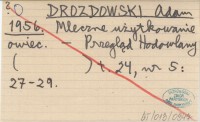 DROZDOWSKI Adam
1956. Mleczne użytkowanie
owiec. — Przegląd Hodowlany
( ) t. 24, nr 5:
27-29.